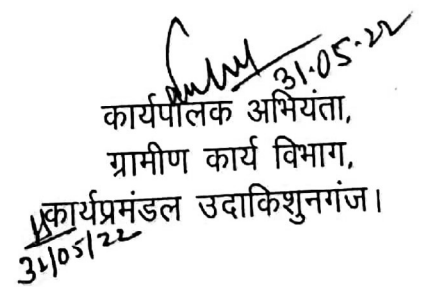 31.05.22
कार्यपालक अभियंता,
ग्रामीण कार्य विभाग,
कार्यप्रमंडल उदाकिशुनगंज।
31/05/22